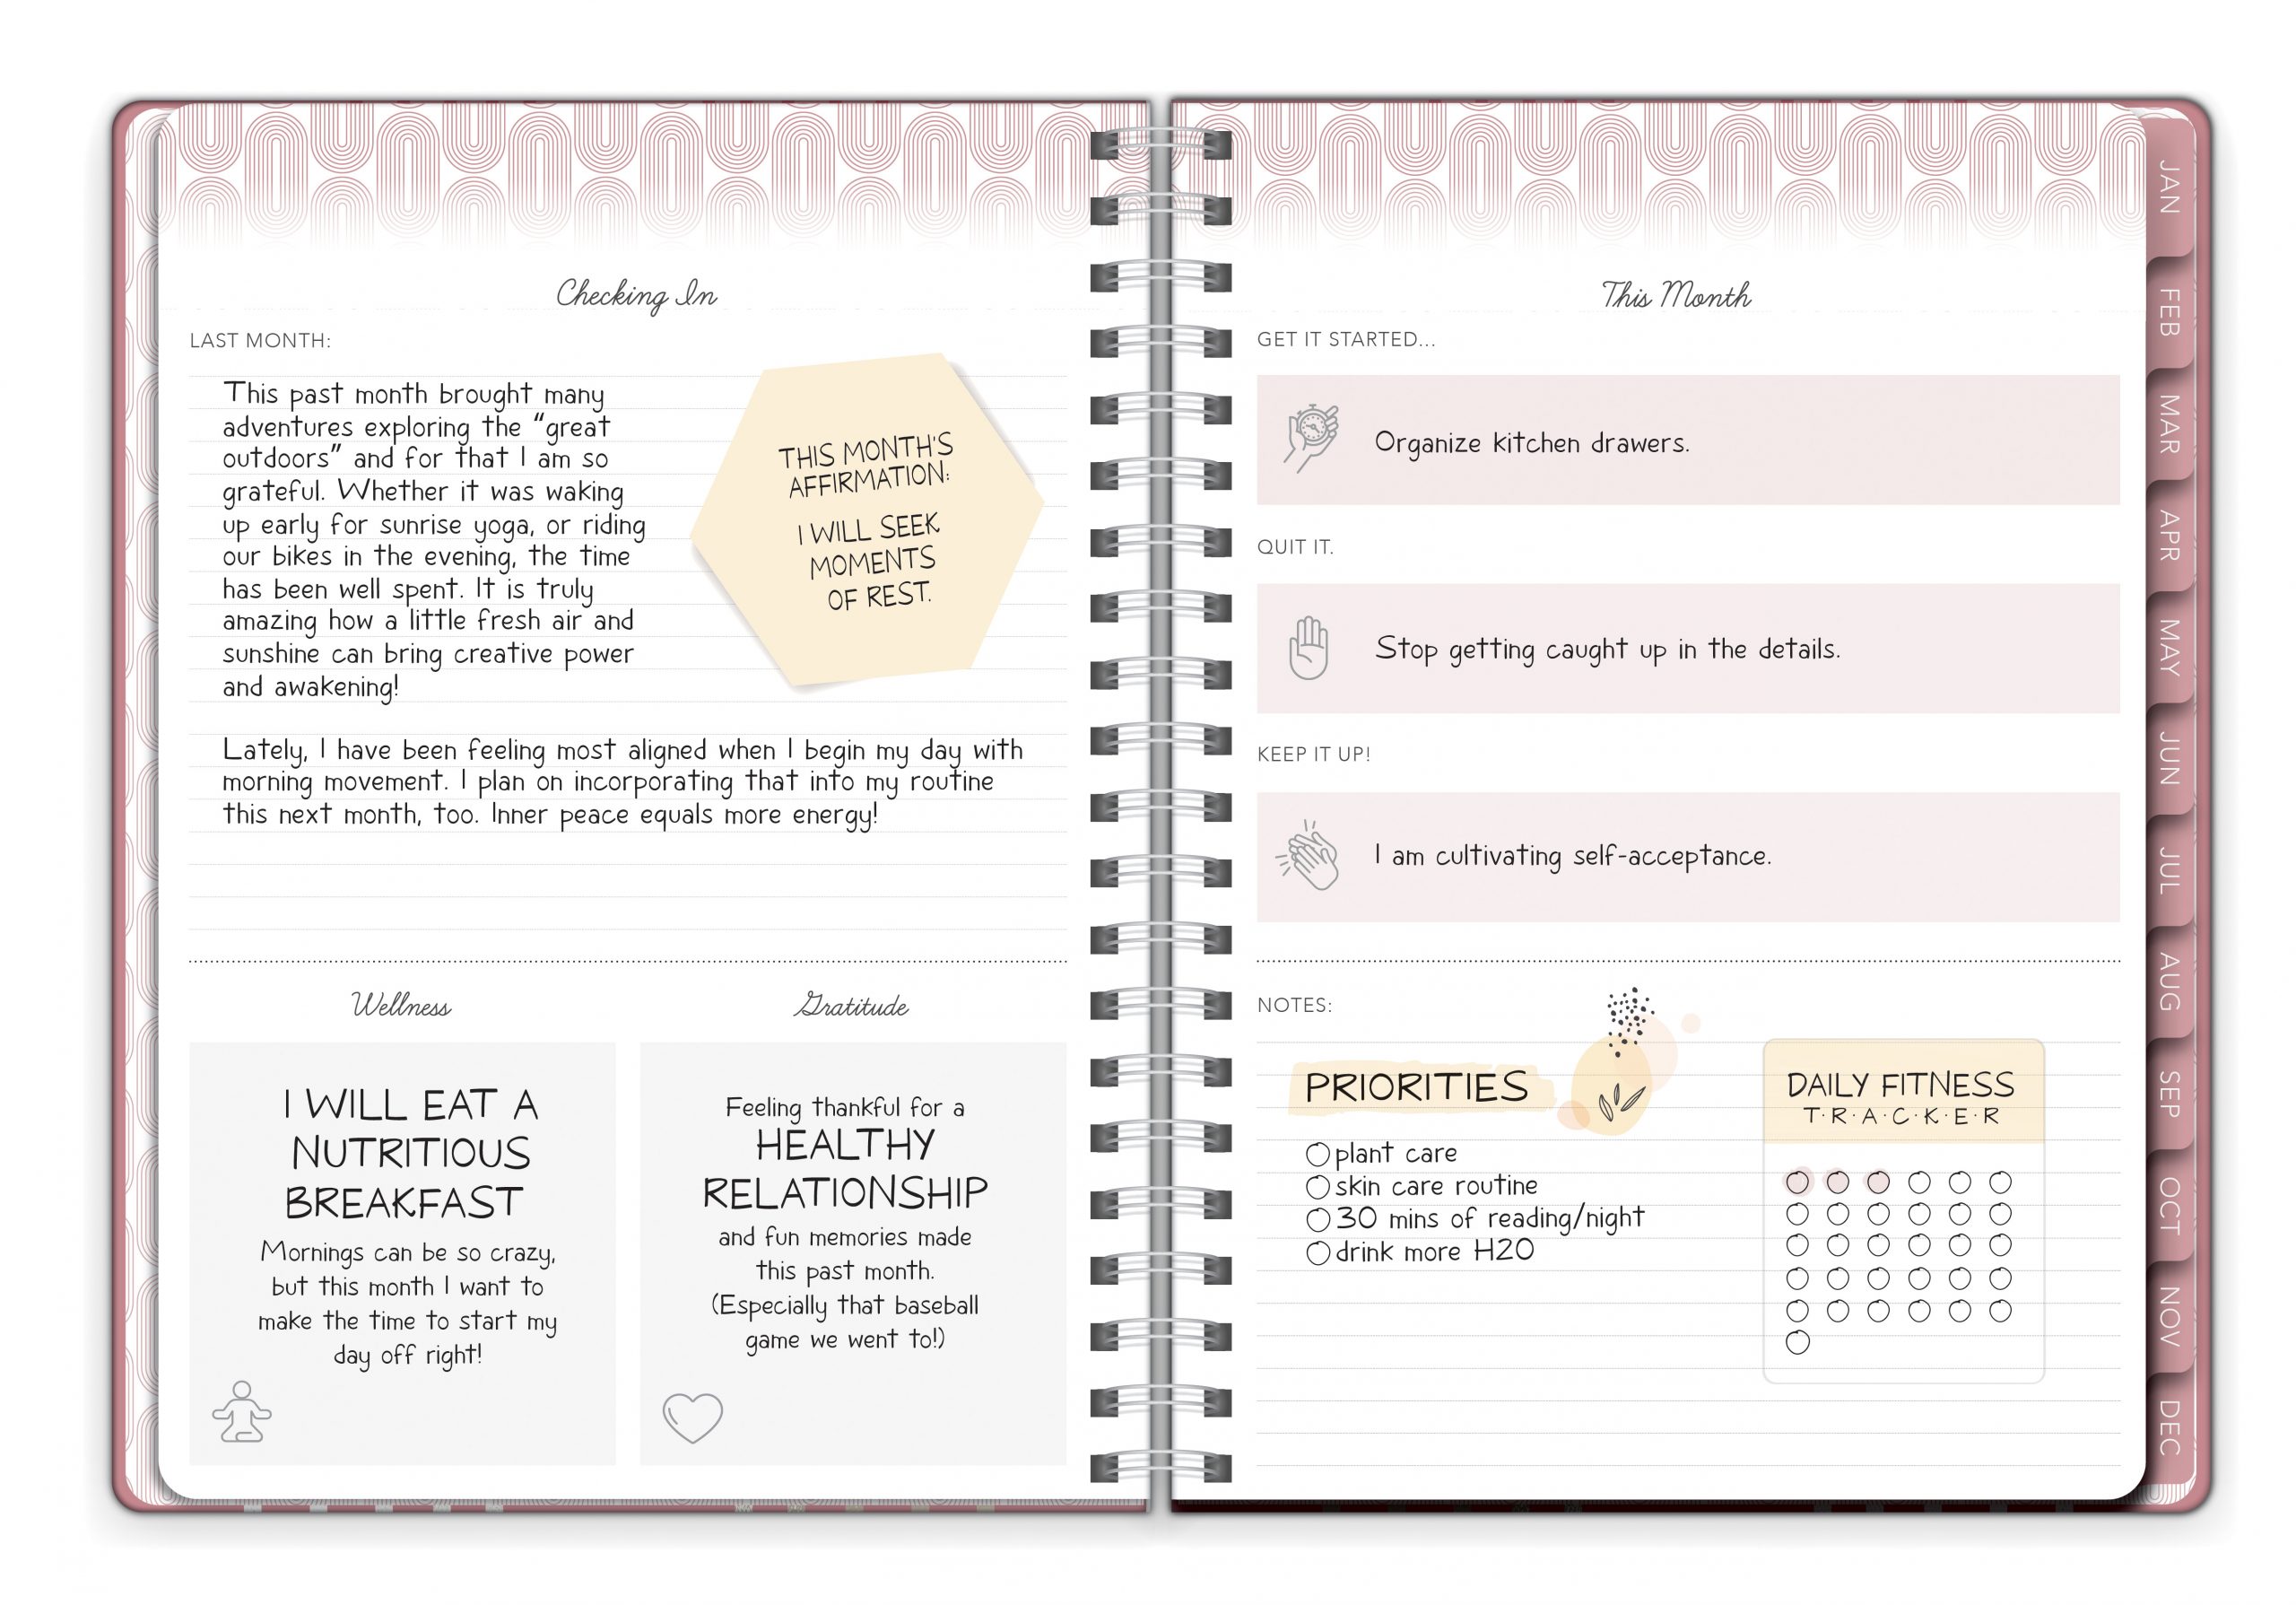 Checking In
LAST MONTH:
This past month brought many
adventures exploring the “great
outdoors” and for that I am so
grateful. Whether it was waking
up early for sunrise yoga, or riding
our bikes in the evening, the time
has been well spent. It is truly
amazing how a little fresh air and
sunshine can bring creative power
and awakening!
THIS MONTH'S
AFFIRMATION:
I WILL SEEK
MOMENTS
OF REST.
Lately, I have been feeling most aligned when I begin my day with
morning movement. I plan on incorporating that into my routine
this next month, too. Inner peace equals more energy!
Wellness
I WILL EAT A
NUTRITIOUS
BREAKFAST
Mornings can be so crazy,
but this month I want to
make the time to start my
day off right!
Gratitude
Feeling thankful for a
HEALTHY
RELATIONSHIP
and fun memories made
this past month.
(Especially that baseball
game we went to!)
This Month
GET IT STARTED...
Organize kitchen drawers.
QUIT IT.
Stop getting caught up in the details.
KEEP IT UP!
I am cultivating self-acceptance.
NOTES:
PRIORITIES
plant care
skin care routine
30 mins of reading/night
drink more H2O
DAILY FITNESS
T·R·A·C·K·E·R
JAN
FEB
MAR
APR
MAY
JUN
JUL
AUG
SEP
OCT
NOV
DEC